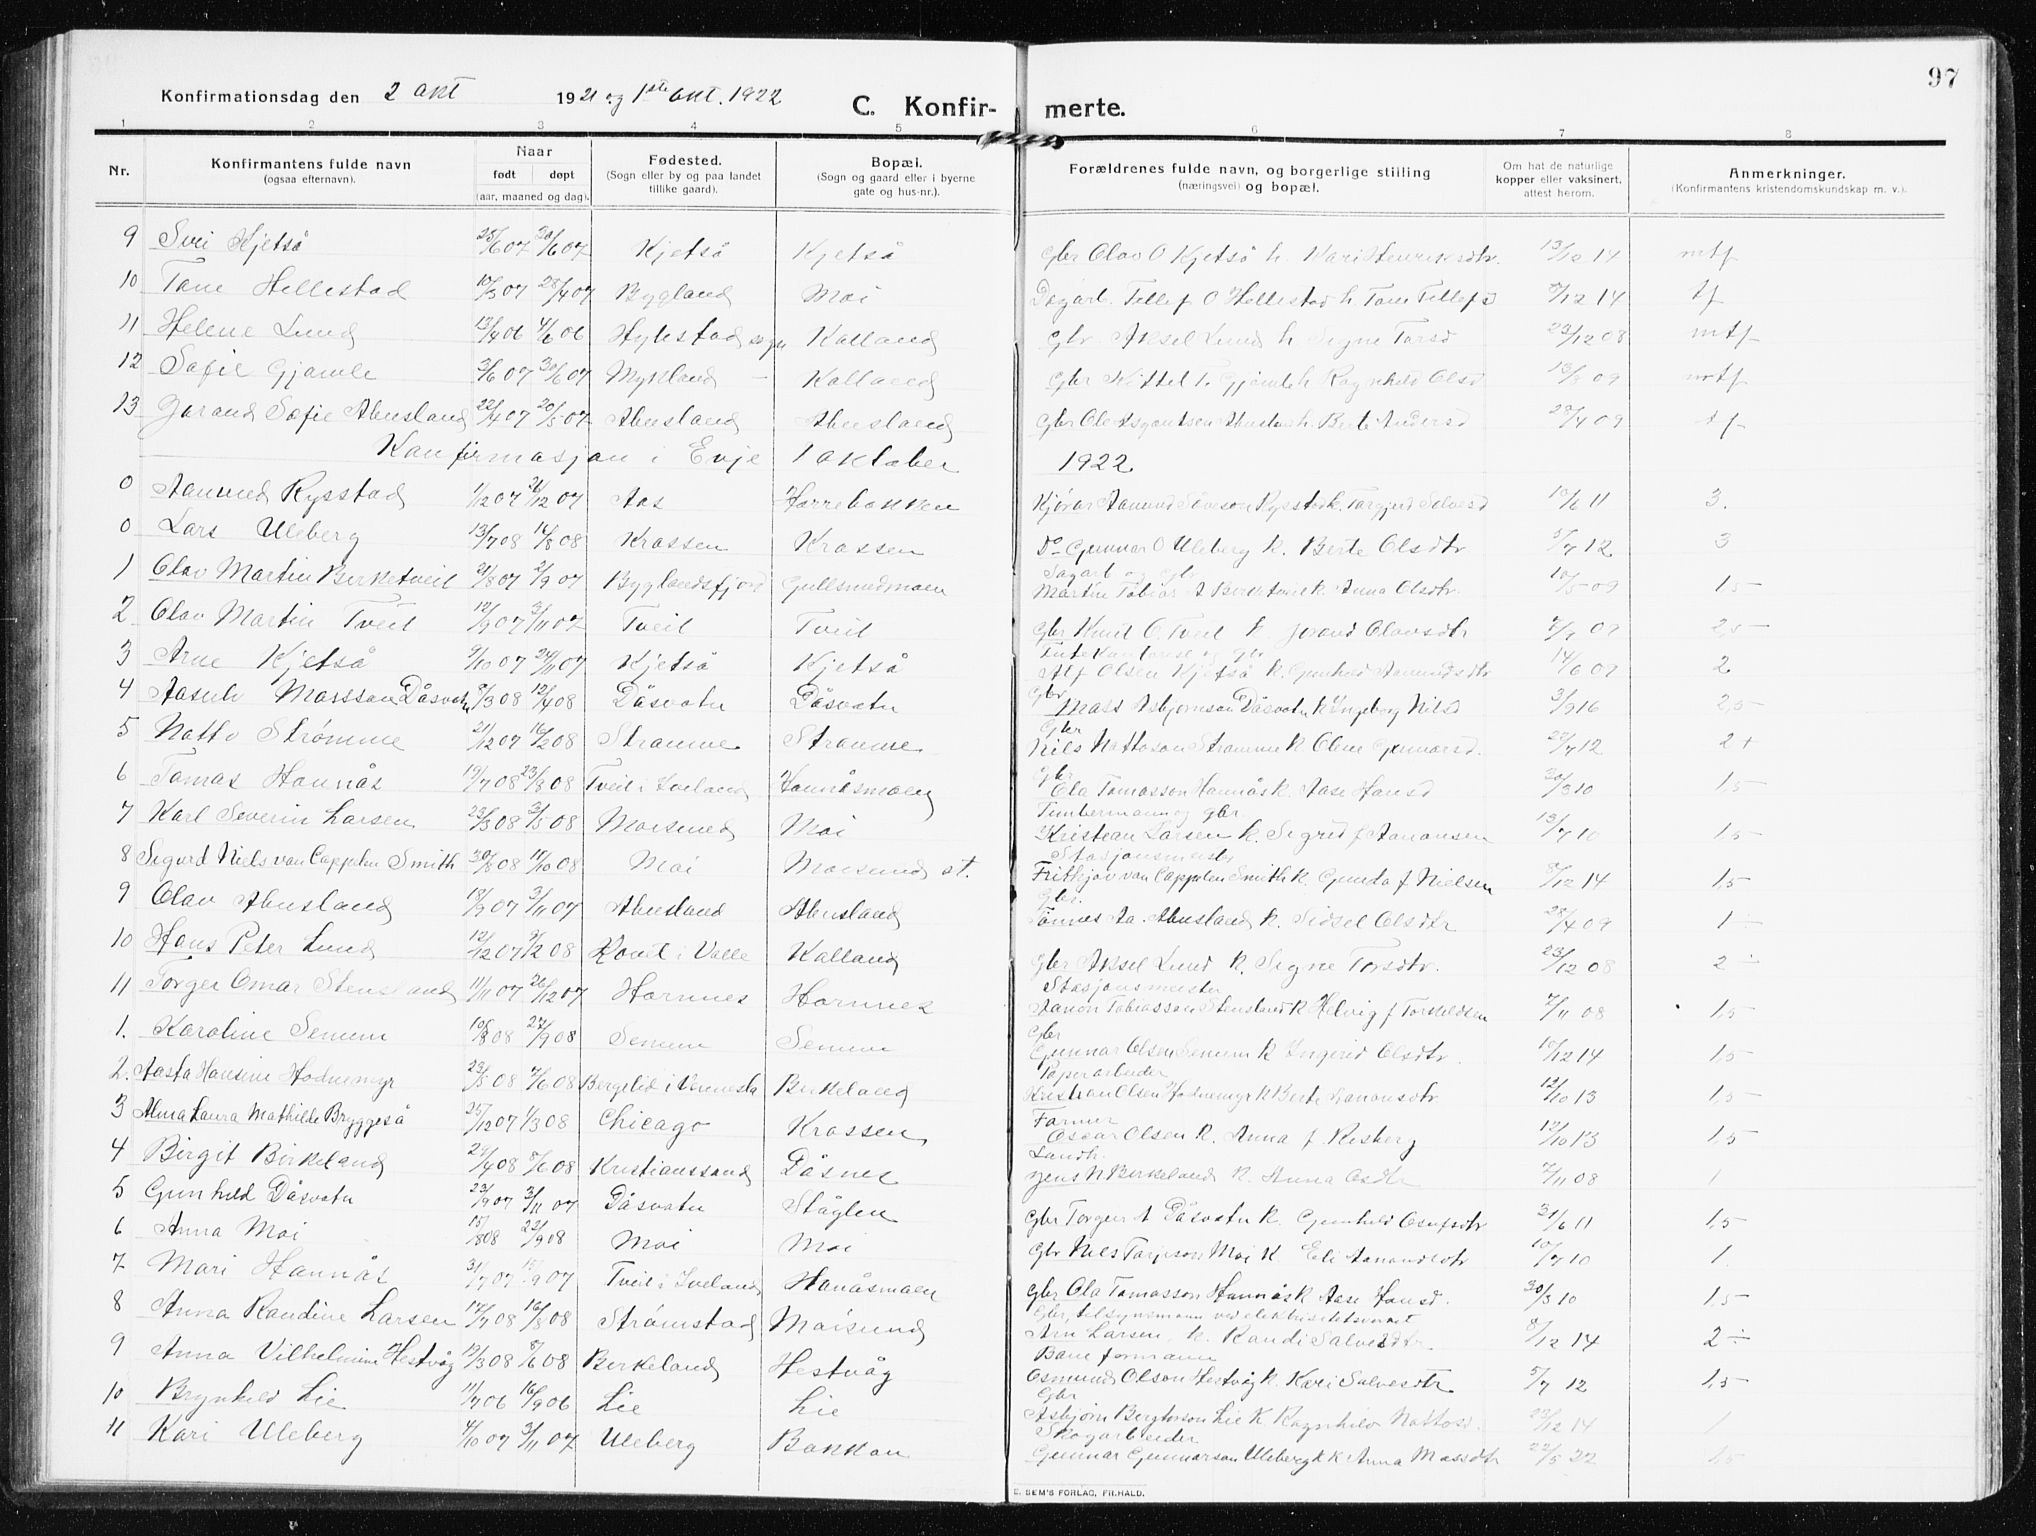 97
Konfirmationsdag den 2 okt 1921 og 1ste okt. 1922 C. Konfir- merte.
1 2 3 4 5 6 7 8
Nr. Konfirmantens fulde navn (ogsaa efternavn). Naar født døpt (aar, maaned og dag). Fødested. (Sogn eller by og paa landet tillike gaard). Bopæl. (Sogn og gaard eller i byerne gate og hus-nr.). Forældrenes fulde navn, og borgerlige stilling (næringsvei) og bopæl. Om hat de naturlige kopper eller vaksinert, attest herom. Anmerkninger. (Konfirmantens kristendomskundskap m. v.).
9 Svei Kjetså 25/6 07 20/6 07 Kjetså Kjetså Gbr Olav O Kjetså h. Kari Henriksdtr. 13/12 14 mtf
10 Tone Hellestad 10/3 07 28/4 07 Bygland Moi Dagarb. Tellef O Hellestad h Tone Tellefsd 8/12 14 tf
11 Helene Lund 13/4 06 4/6 06 Hylestad sogn Kalland Gbr. Aksel Lund h Signe Torsd 23/12 08 mtf
12 Sofie Gjamle 3/6 07 30/6 07 Mykland – Kalland Gbr Kittel T. Gjamle h Ragnhild Olsd 13/9 09 mtf
13 Jorand Sofie Abusland 22/4 07 20/5 07 Abusland Abusland Gbr Ole Asgautsen Abusland h. Berte Andersd 28/4 09 tf
Konfirmasjon i Evje 1 oktober 1922
0 Aanund Rysstad 1/12 07 26/12 07 Aas Horrebakken Kjörar Aamund Rysstad k. Targjerd Salvesd 10/6 11 3.
0 Lars Uleberg 13/7 08 14/8 08 Krossen Krossen Do Gunnar O Uleberg k. Berte Olsdtr 5/7 12 3
Sagarb og gbr
1 Olav Martin Birketveit 21/8 07 2/9 07 Byglandsfjord Gullsmedmoen Martin Tobias A Birketveit k. Anna Olsdtr. 10/5 09 1,5
2 Olav Martin Tveit 12/9 07 3/11 07 Tveit Tveit Gbr Knut O. Tveit k. Jorand Olavsdtr 8/9 09 2,5
3 Arne Kjetså 9/10 07 24/11 07 Kjetså Kjetså Alf Olsen Kjetså k. Gunhild Aanundsdtr 14/6 09 2
Gbr
4 Aasulv Massson Dåsvatn 8/3 08 12/4 08 Dåsvatn Dåsvatn Mass Asbjørnson Dåsvatn k Ingeborg Nilsd 3/9 16 2,5
Gbr
5 Notto Strømme 21/12 07 16/2 08 Stromme Stromme Nils Nottoson Stromme k. Oline Gunnarsd. 27/7 12 2+
Gbr
6 Tomas Honnås 19/7 08 23/8 08 Tveit i Iveland Honnåsmoen Ola Tomasson Honnås k. Aase Hansd 30/3 10 1,5
Timbermann og gbr.
7 Karl Severin Larsen 23/3 08 3/5 08 Moisund Moi Kristean Larsen k. Sigrid f Aanonsen 13/7 10 1,5
Stasjonsmester
8 Sigurd Niels van Cappelen Smith 30/8 08 11/10 08 Moi Moisund st. Fritkjov van Cappelen Smith k. Gunda f Nielsen 8/12 14 1,5
Gbr.
9 Olav Abusland 18/9 07 3/11 07 Abusland Abusland Tønnes Aa. Abusland k. Sidsel Olsdtr 28/4 09 1 –
10 Hans Peter Lund 12/12 07 9/2 08 Rovit i Valle Kalland Gbr Aksel Lund k. Signe Torsdtr. 23/12 08 2 ÷
Stasjonsmester
11 Torger Omar Stensland 11/11 07 26/12 07 Hornnes Hornnes Aanon Tobiassen Stensland k Helvig f Torkildsen 7/11 08 1,5
Gbr
1. Karoline Senum 10/8 08 27/9 08 Senum Senum Gunnar Olsen Senum k Ingerid Olsdtr. 10/12 14 1,5
Papirarbeider
2. Aasta Hansine Hodnemyr 23/5 08 7/6 08 Bergelid i Vennesla Birkeland Kristian Olsen Hodnemyr k Berte Aanonsdtr 12/10 13 1,5
Farmer
3 Alma Laura Mathilde Bryggeså 25/12 07 1/3 08 Chicago Krossen Oscar Olsen k. Anna f. Risberg 12/10 13 1,5
Landh.
4 Birgit Birkeland 24/4 08 8/6 08 Kristianssand Dåsnes Jens N Birkeland k. Anna Osdtr 7/11 08 1
5 Gunhild Dåsvatn 23/9 07 3/11 07 Dåsvatn Ståglen Gbr Torgeir A Dåsvatn k. Gunhild Osufsdtr 31/6 11 1,5
6 Anna Moi 15/8 08 22/9 08 Moi Moi Gbr Nils Tarjeson Moi k Eli Aanundsdtr 10/7 10 1.
7 Mari Honnås 31/7 07 15/9 07 Tveit i Iveland Honåsmoen Gbr Ola Tomasson Honnås k Aase Hansd. 30/3 10 1,5
Gbr, tilsynsmann ved elektrisitetsverket
8 Anna Randine Larsen 17/7 08 16/8 08 Strömstad Moisund Arn Larsen k. Randi Salvesdtr. 8/12 14 2 ÷
Bane formann
9 Anna Vilhelmine Hestvåg 19/3 08 8/6 08 Birkeland Hestvåg Osmund Olson Hestvåg k. Kari Salvesdtr 5/7 12 1,5
Gbr
10 Brynhild Lie 11/7 06 16/9 06 Lie Lie Asbjørn Bergtorson Lie k Ragnhild Nottosd. 22/12 14 1
Skogarbeider
11 Kari Uleberg 4/10 07 3/11 07 Uleberg Bakkan Gunnar Gunnarson Uleberg k k Anna Massdtr 22/5 22 1,5
E. SEM'S FORLAG, FR.HALD.